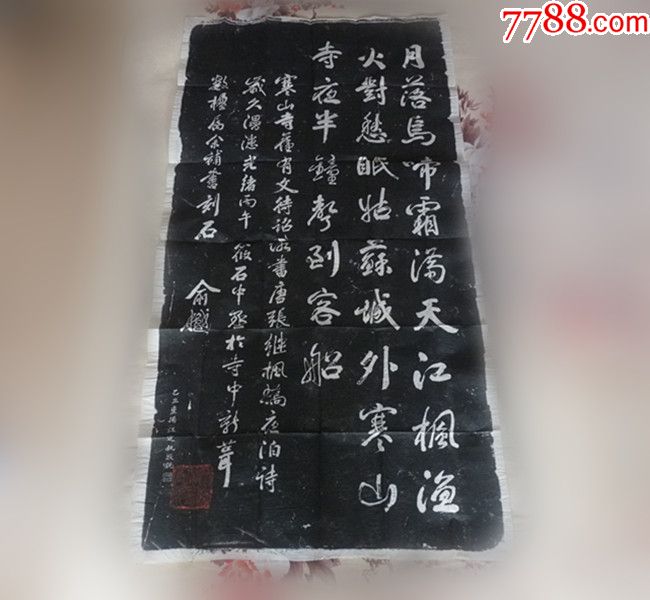 7788.com
月落烏啼霜滿天江楓漁
火對愁眠姑蘇城外寒山
寺夜半鐘聲到客船
寒山寺舊有文待詔所書唐張繼楓橋夜泊詩
歲久漫漶光緒丙午 筱石中丞於寺中新葺
數楹屬余補書刻石
俞樾